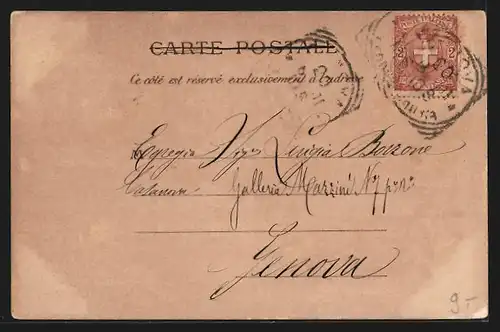 CARTE POSTALE
Ce côté est réservé exclusivement à l'adresse
Egregia Sig.ra Luigia Bozzone
Casanova
Galleria Mazzini N 7 p.no 2
Genova
9.-